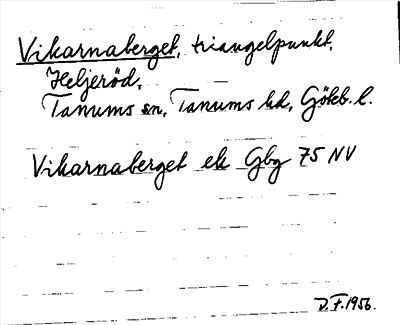 Vikarnaberget, triangelpunkt,
Heljeröd,
Tanums sn, Tanums hd, Göteb. l.
Vikarnaberget ek Gbg 75 NV
D. F. 1956.